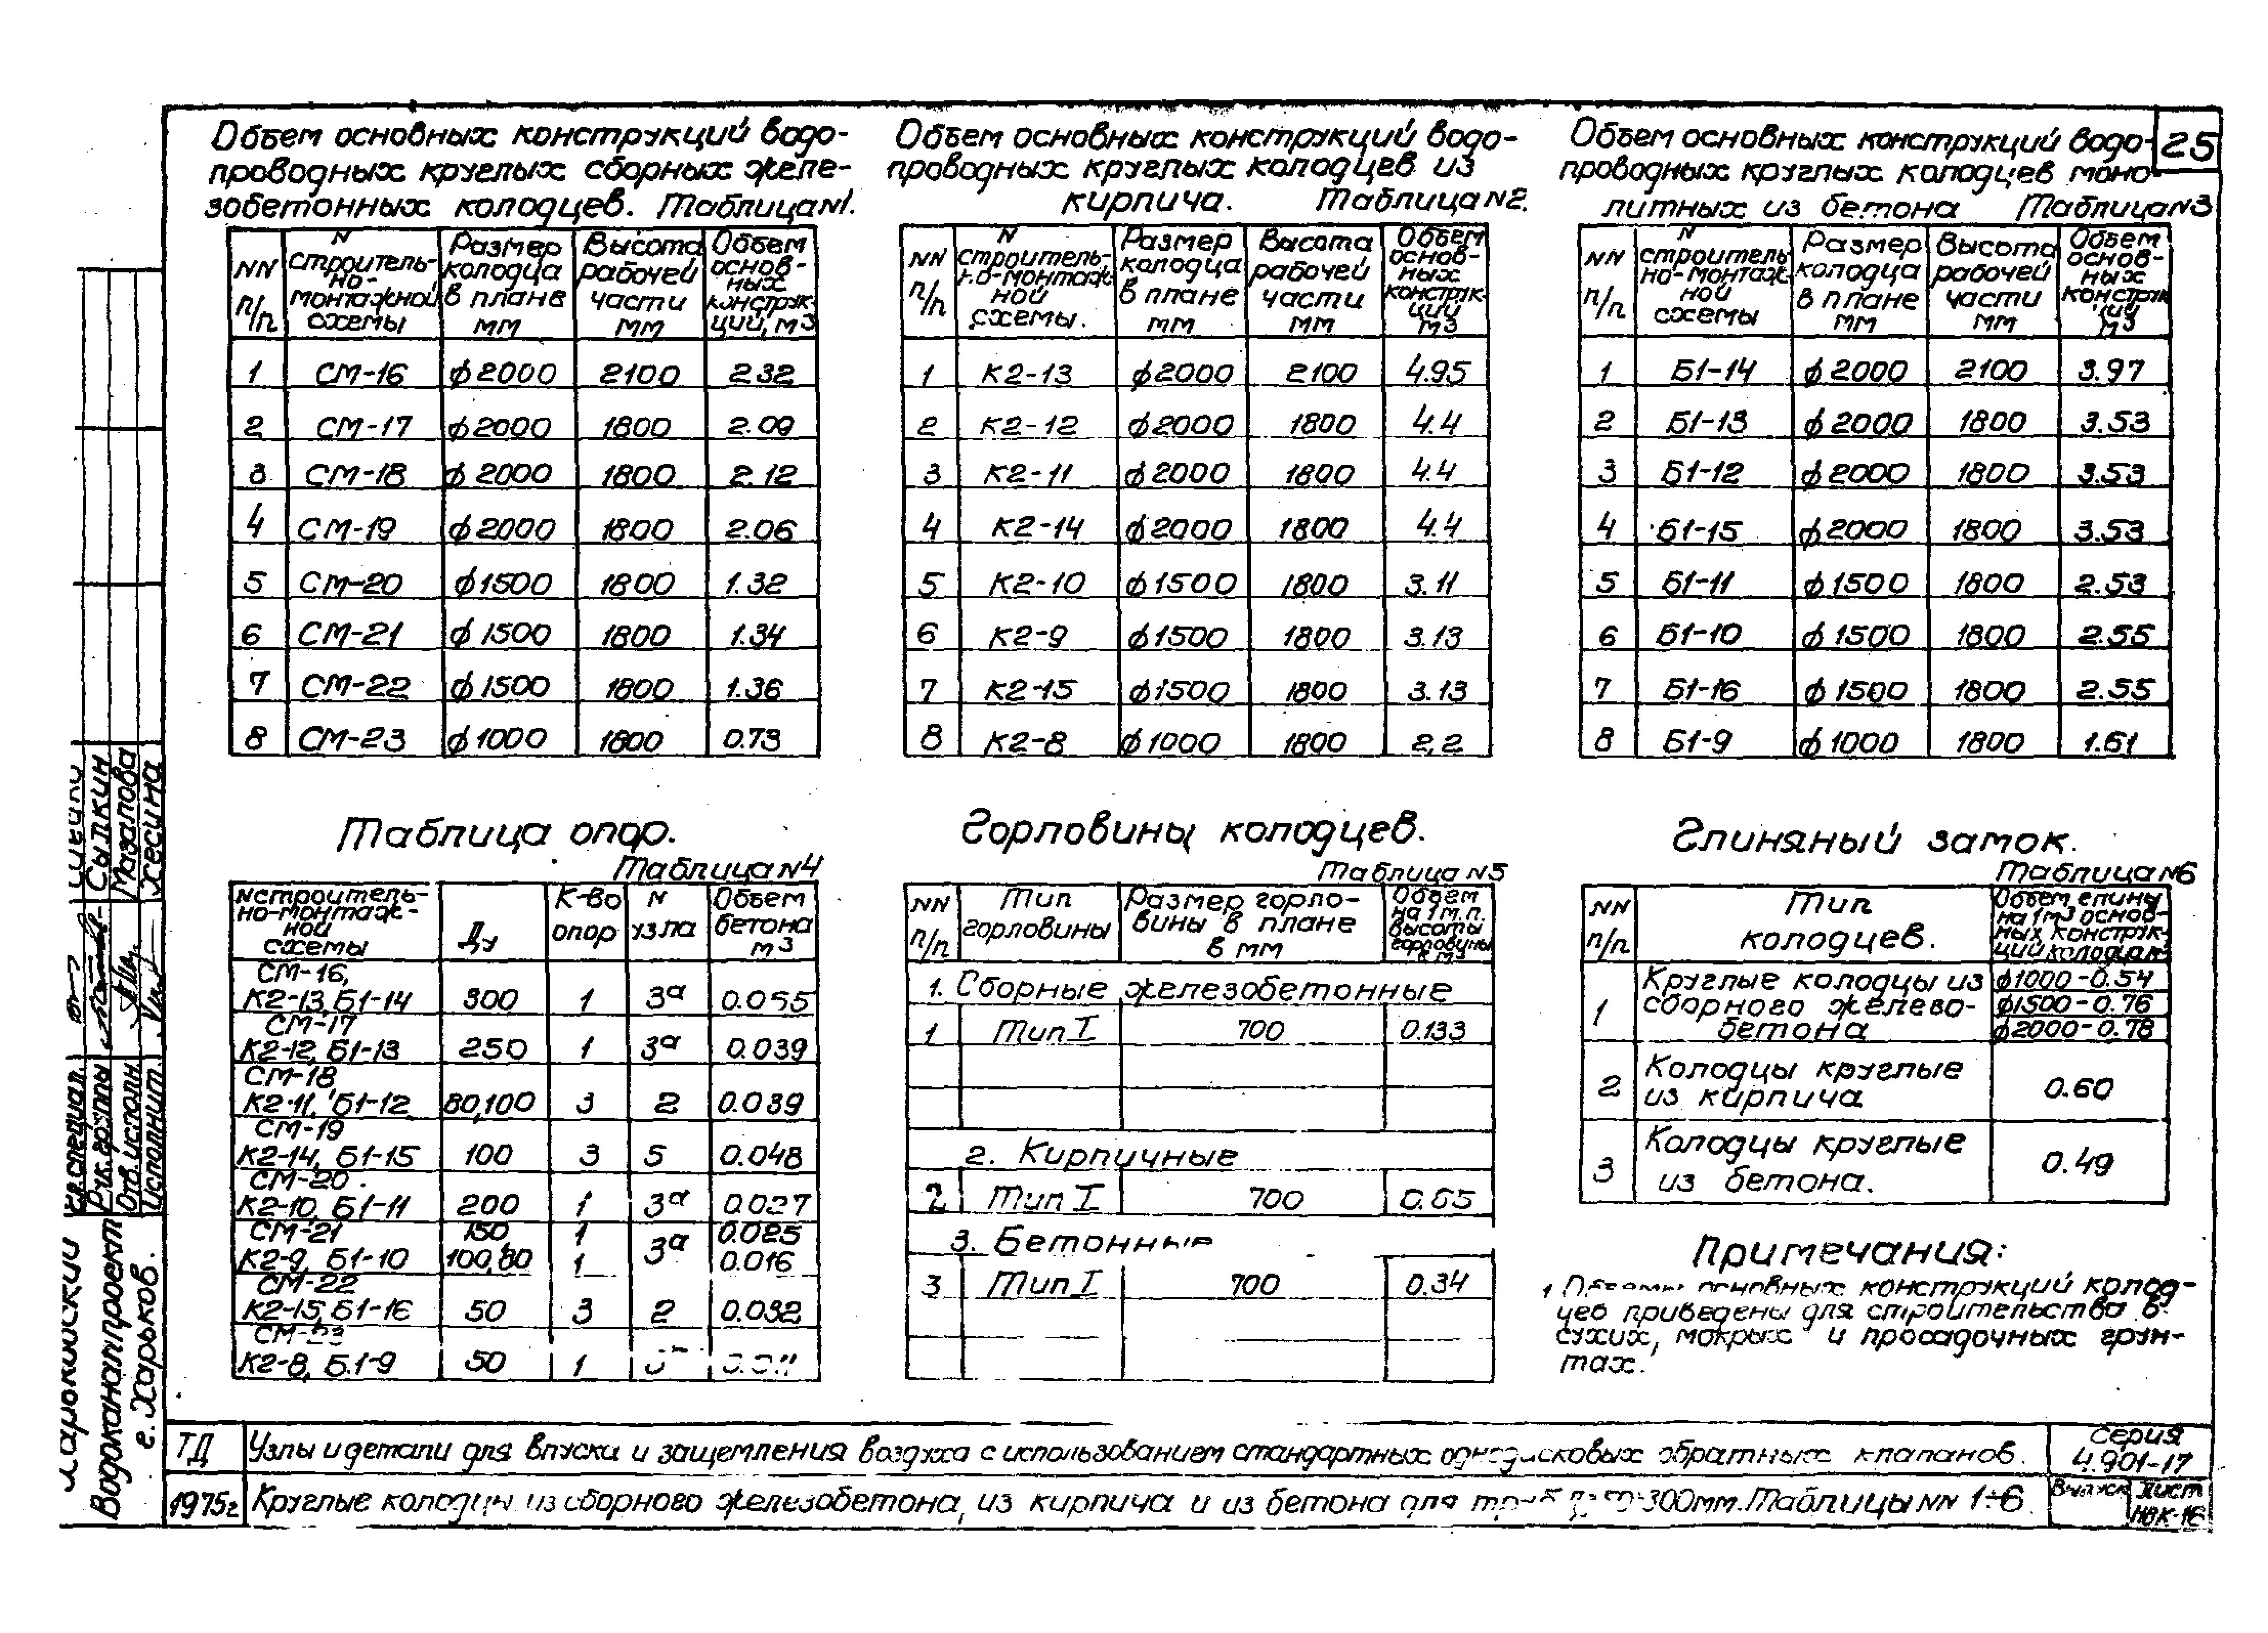 25
Объем основных конструкций водо-
проводных круглых сборных желе-
зобетонных колодцев. Таблица N1.
NN п/п | N строитель-но-монтажной схемы | Размер колодца в плане мм | Высота рабочей части мм | Объем основ-ных конструк-ций, м3
1 СМ-16 ф2000 2100 2.32
2 СМ-17 ф2000 1800 2.09
3 СМ-18 ф2000 1800 2.12
4 СМ-19 ф2000 1800 2.06
5 СМ-20 ф1500 1800 1.32
6 СМ-21 ф1500 1800 1.34
7 СМ-22 ф1500 1800 1.36
8 СМ-23 ф1000 1800 0.73
Объем основных конструкций водо-
проводных круглых колодцев из
кирпича. Таблица N2.
NN п/п | N строитель-но-монтаж-ной схемы. | Размер колодца в плане мм | Высота рабочей части мм | Объем основ-ных конструк-ций м3
1 К2-13 ф2000 2100 4.95
2 К2-12 ф2000 1800 4.4
3 К2-11 ф2000 1800 4.4
4 К2-14 ф2000 1800 4.4
5 К2-10 ф1500 1800 3.11
6 К2-9 ф1500 1800 3.13
7 К2-15 ф1500 1800 3.13
8 К2-8 ф1000 1800 2,2
Объем основных конструкций водо-
проводных круглых колодцев моно-
литных из бетона Таблица N3
NN п/п | N строитель но-монтаж-ной схемы | Размер колодца в плане мм | Высота рабочей части мм | Объем основ-ных конструк ций м3
1 Б1-14 ф2000 2100 3.97
2 Б1-13 ф2000 1800 3.53
3 Б1-12 ф2000 1800 3.53
4 Б1-15 ф2000 1800 3.53
5 Б1-11 ф1500 1800 2.53
6 Б1-10 ф1500 1800 2.55
7 Б1-16 ф1500 1800 2.55
8 Б1-9 ф1000 1800 1.61
Таблица опор.
Таблица N4
N строитель-но-монтаж-ной схемы | Ду | К-во опор | N узла | Объем бетона м3
СМ-16,
К2-13, Б1-14 300 1 3а 0.055
СМ-17
К2-12, Б1-13 250 1 3а 0.039
СМ-18,
К2-11, Б1-12 80,100 3 2 0.039
СМ-19
К2-14, Б1-15 100 3 5 0.048
СМ-20.
К2-10, Б1-11 200 1 3а 0.027
СМ-21 150, 1 0.025
К2-9, Б1-10 100,80 1 3а 0.016
СМ-22
К2-15, Б1-16 50 3 2 0.032
СМ-23
К2-8, Б.1-9 50 1
Горловины колодцев.
Таблица N5
NN п/п | Тип горловины | Размер горло-вины в плане в мм | Объем на 1 м.п. высоты горловины в м3
1. Сборные железобетонные
1 Тип I 700 0.133
2. Кирпичные
2 Тип I 700 0.65
3. Бетонные
3 Тип I 700 0.34
Глиняный замок.
Таблица N6
NN п/п | Тип колодцев. | Объем глины на 1м3 основ-ных конструк-ций колодцев
1 Круглые колодцы из сборного железо-бетона
ф1000-0.54
ф1500-0.76
ф2000-0.78
2 Колодцы круглые из кирпича 0.60
3 Колодцы круглые из бетона. 0.49
Примечания:
1 Объемы основных конструкций колод-
цев приведены для строительства в
сухих, мокрых и просадочных грун-
тах.
ТД Узлы и детали для впуска и защемления воздуха с использованием стандартных однодисковых обратных клапанов. Серия 4.901-17
1975г Круглые колодцы из сборного железобетона, из кирпича и из бетона для 300мм. Таблицы NN 1÷6 Выпуск Лист НВК-16
Гл.специал.
Рук.группы Сыпкин
Отв.исполн. Мазалова
Исполнит. Хесина
Харьковский
Водоканалпроект
г. Харьков.